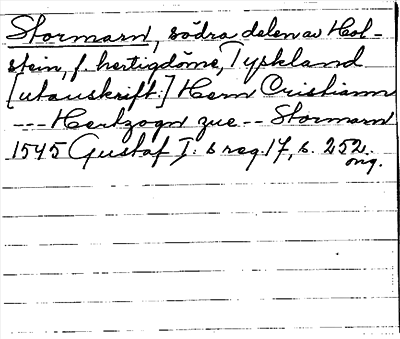 Stormarn, södra delen av Hol-
stein, f. hertigdöme, Tyskland
[utanskrift:] Hern Cristiann
--- Hertzogn zue -- Stormarn
1545 Gustaf I:s reg. 17, s. 252.
orig.